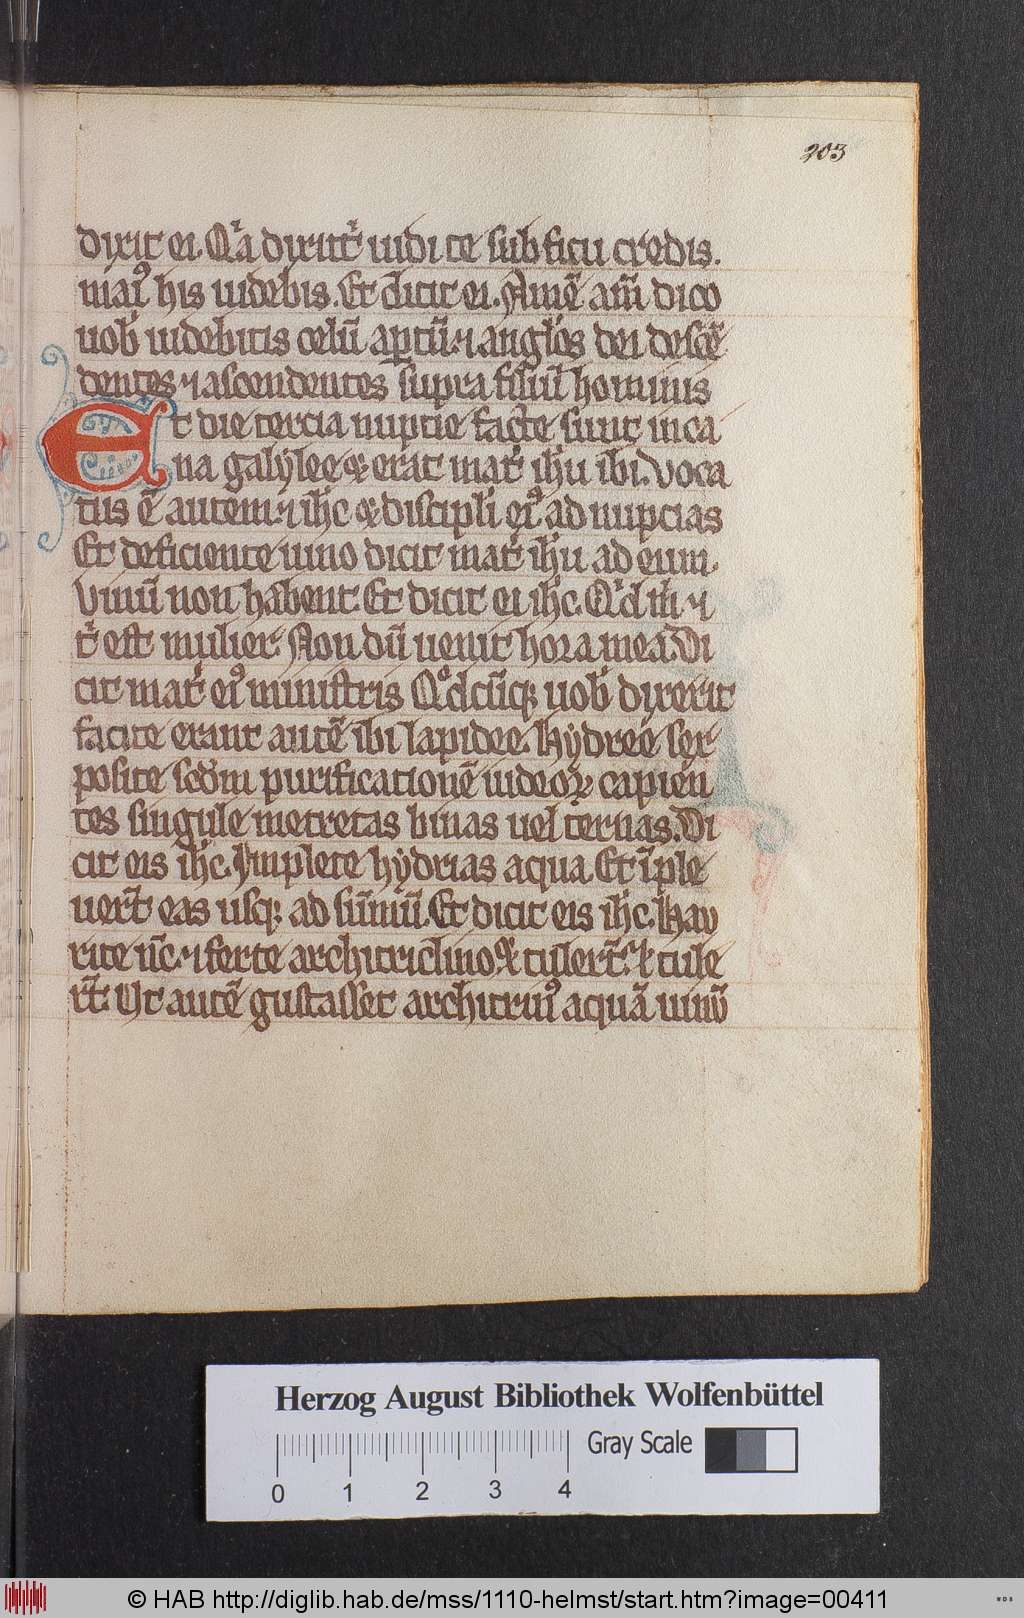 203
dixit ei. Qͥa dixi tͥ uidi te sub ficu credis.
maiꝰ his uidebis. Et dicit ei. Amē am̄ dico
uob̓ uidebitis celū aꝑtū. ⁊ anglos dei descē
dentes ⁊ ascendentes supra filiū hominis
Et die tercia nuptie facte sunt in ca
na galylee ⁊ erat mat̓ ih̓u ibi. Voca
tus ē autem. ⁊ ih̓c ⁊ discipli eiꝰ ad nupcias
Et deficiente uino dicit mat̓ ih̓u ad eum.
Vinū non habent. Et dicit ei ih̓c. Qͥd m̓ ⁊
t̓ est mulier. Non dū uenit hora mea. Di
cit mat̓ eiꝰ ministris Qͦdcūqꝫ uob̓ dixerit
facite erant autē ibi lapidee hydree sex
posite scd̓m purificationē iudeoꝝ capien
tes singule metretas binas uel ternas. Di
cit eis ih̓c. Implete hydrias aqua. Et īple
uert̄ eas usqꝫ ad sūmū. Et dicit eis ih̓c. Hau
rite nc̄. ⁊ ferte architriclino ⁊ tulert̄. ⁊ tule
rt̄. Ut autē gustasset architriꝰ aquā uinū
Herzog August Bibliothek Wolfenbüttel
Gray Scale
0 1 2 3 4
© HAB http://diglib.hab.de/mss/1110-helmst/start.htm?image=00411